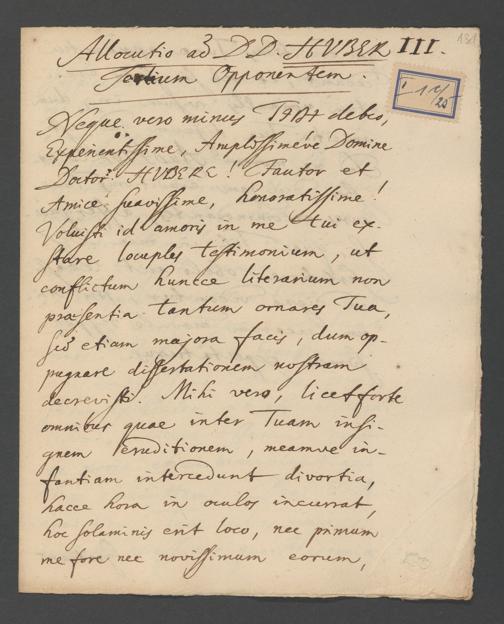 Allocutio ad D.D. HUBER III.
Tertium Opponentem.
Neque vero minus TIBI debeo,
Experientissime, Amplissimeve Domine
Doctor HUBERE! Fautor et
Amice suavissime, honoratissime!
Voluisti id amoris in me tui ex-
stare locuples testimonium, ut
conflictum huncce literarium non
præsentia tantum ornares Tua,
sed etiam majora facis, dum op-
pugnare dissertationem nostram
decrevisti. Mihi vero, licet forte
omnibus quae inter Tuam insi-
gnem eruditionem, meamve in-
fantiam intercedunt divortia,
hacce hora in oculos incurrat,
hoc solaminis erit loco, nec primum
me fore nec novissimum eorum,